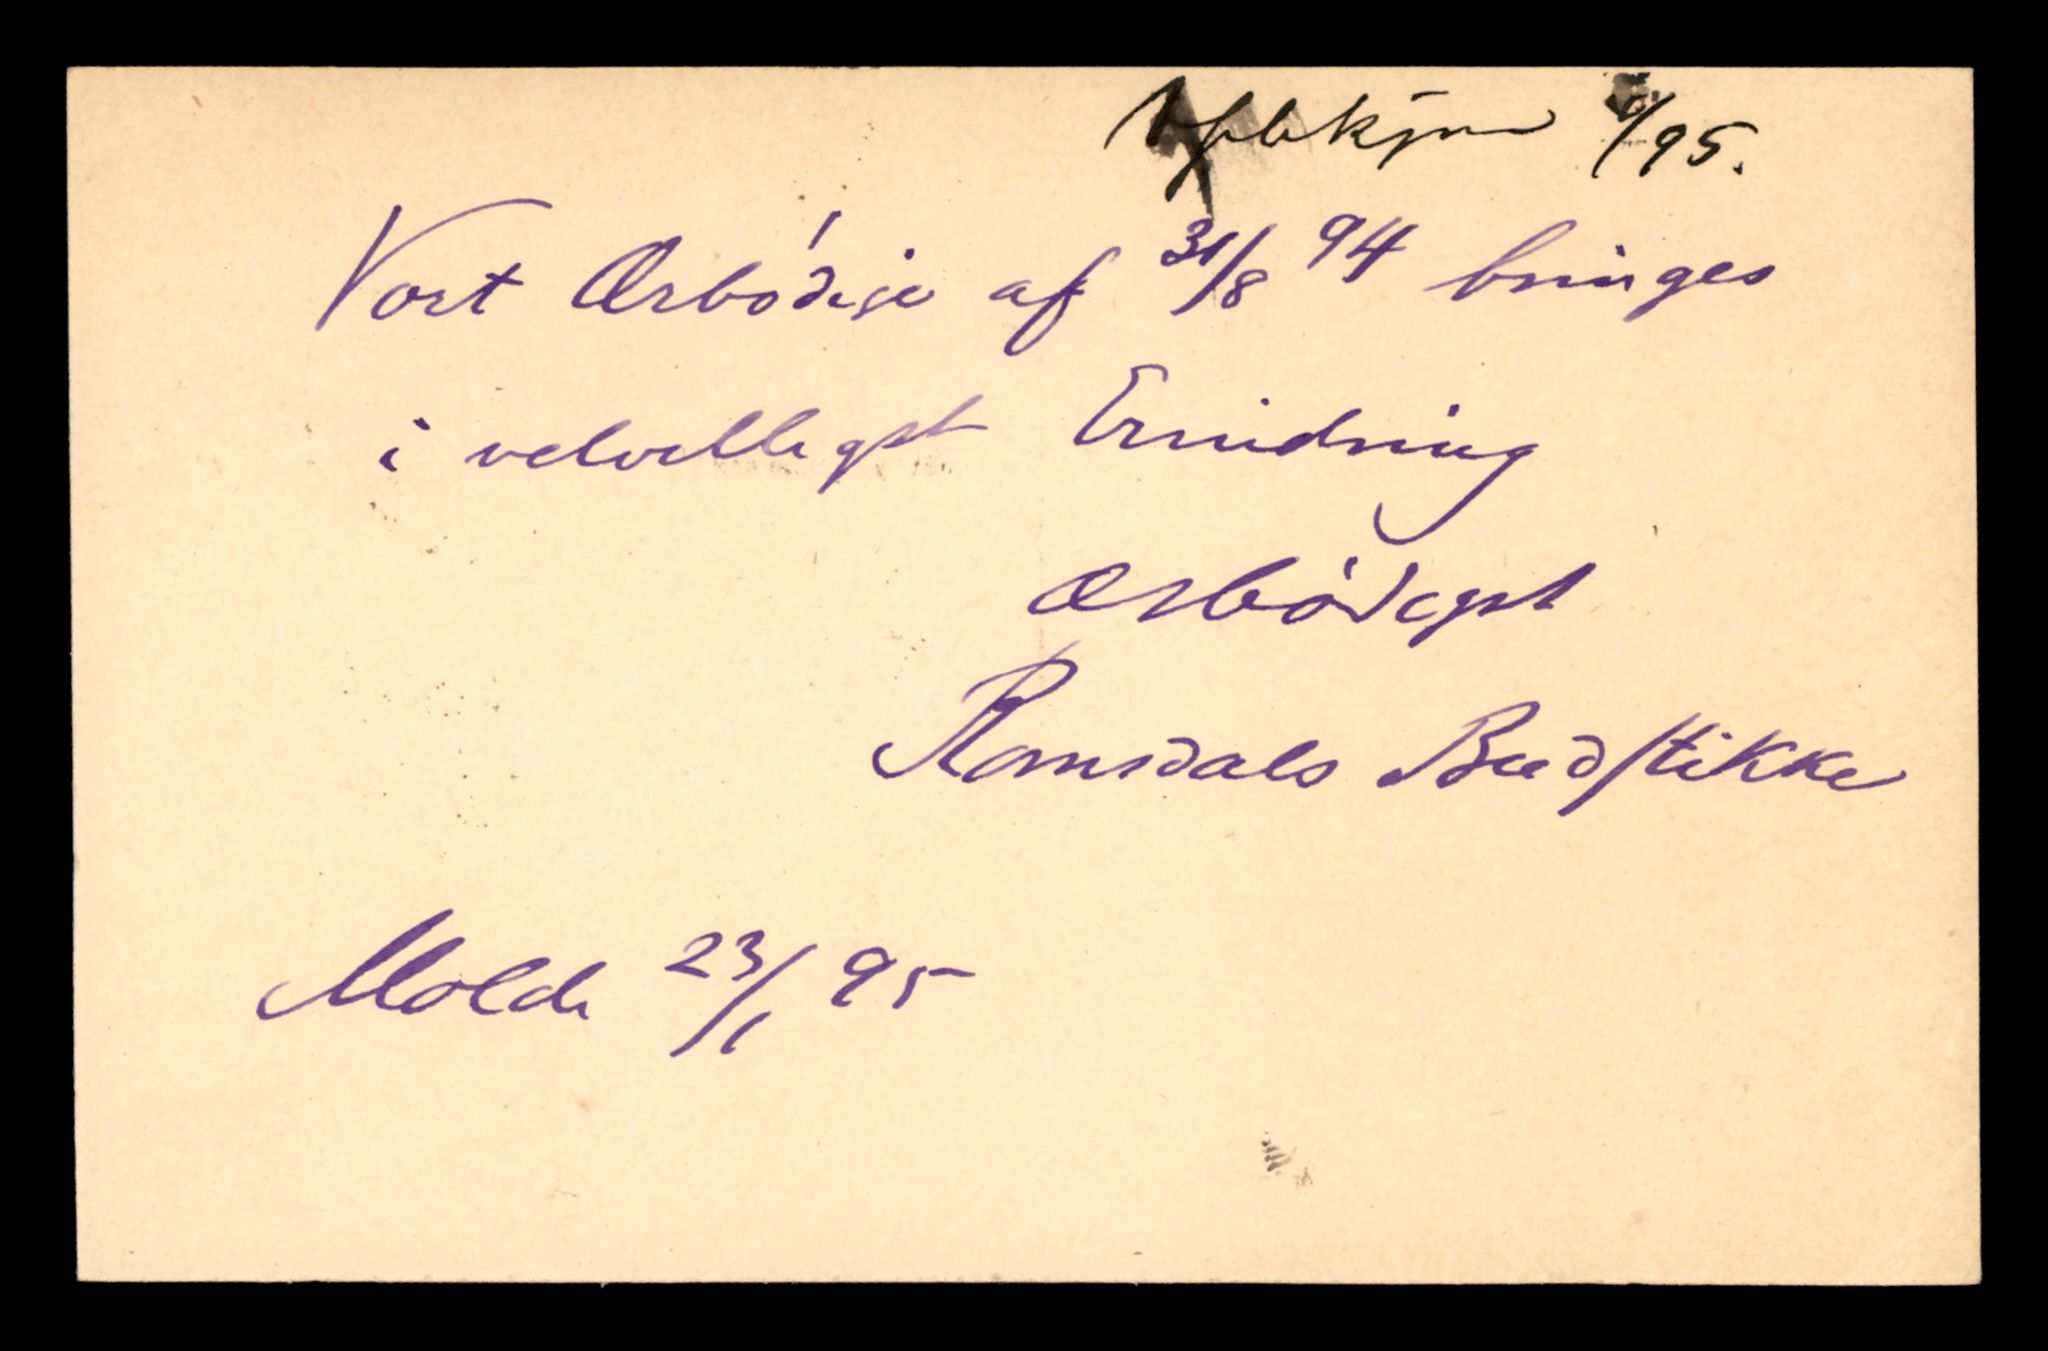 /95.
Vort Ærbødige af 31/8 94 bringes
i velvilligst Erindring
Ærbødigst
Romsdals Budstikke
Molde 23/1 95